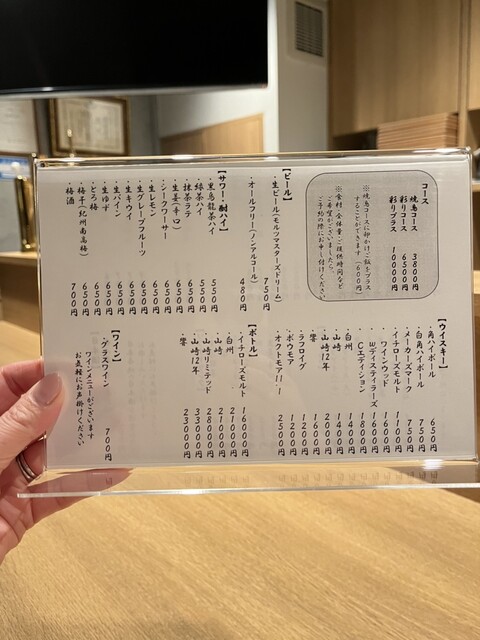 コース
焼鳥コース 3800円
彩りコース 6500円
彩りプラス 10000円
※焼鳥コースに卵かけご飯をプラス
することができます(600円)
※食材や全体量、ご提供時間など
ご希望がございましたら、
ご予約の際にお申し付けください
【ビール】
・生ビール(モルツマスターズドリーム) 750円
・オールフリー(ノンアルコール) 480円
【サワー・酎ハイ】
・黒烏龍茶ハイ 550円
・緑茶ハイ 550円
・抹茶ラテ 650円
・生姜(辛口) 650円
・シークワーサー 650円
・生レモン 650円
・生グレープフルーツ 650円
・生キウイ 650円
・生パイン 650円
・生ゆず 650円
・とろ梅 650円
・梅干(紀州南高梅) 650円
・梅酒 700円
【ウイスキー】
・角ハイボール 650円
・白角ハイボール 750円
・メーカーズマーク 750円
・イチローズモルト 1100円
・ワインウッド 1600円
・Wディスティラリーズ 1600円
・Cエディション 1800円
・白州 1400円
・山崎 1400円
・山崎12年 2000円
・響 1600円
・ラフロイグ 1200円
・ボウモア 1200円
・オクトモア11.1 2500円
【ボトル】
・イチローズモルト 16000円
・白州 21000円
・山崎 21000円
・山崎リミテッド 28000円
・山崎12年 33000円
・響 23000円
【ワイン】
・グラスワイン 700円
ワインメニューがございます
お気軽にお声掛けください